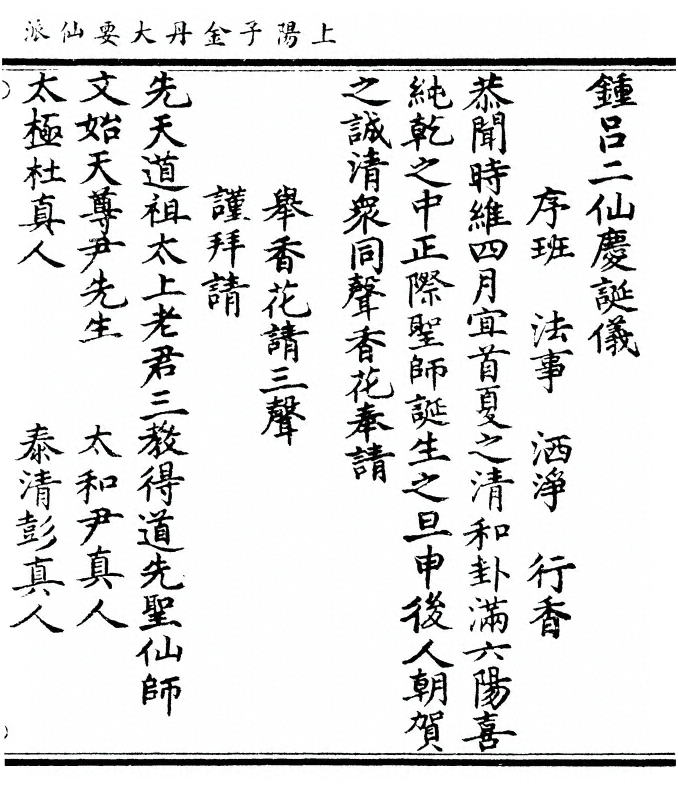 上陽子金丹大要仙派
鍾呂二仙慶誕儀
序班 法事 洒淨 行香
恭聞時維四月宜首夏之清和卦滿六陽喜
純乾之中正際聖師誕生之旦申後人朝賀
之誠清衆同聲香花奉請
舉香花請三聲
謹拜請
先天道祖太上老君三教得道先聖仙師
文始天尊尹先生 太和尹真人
太極杜真人 泰清彭真人